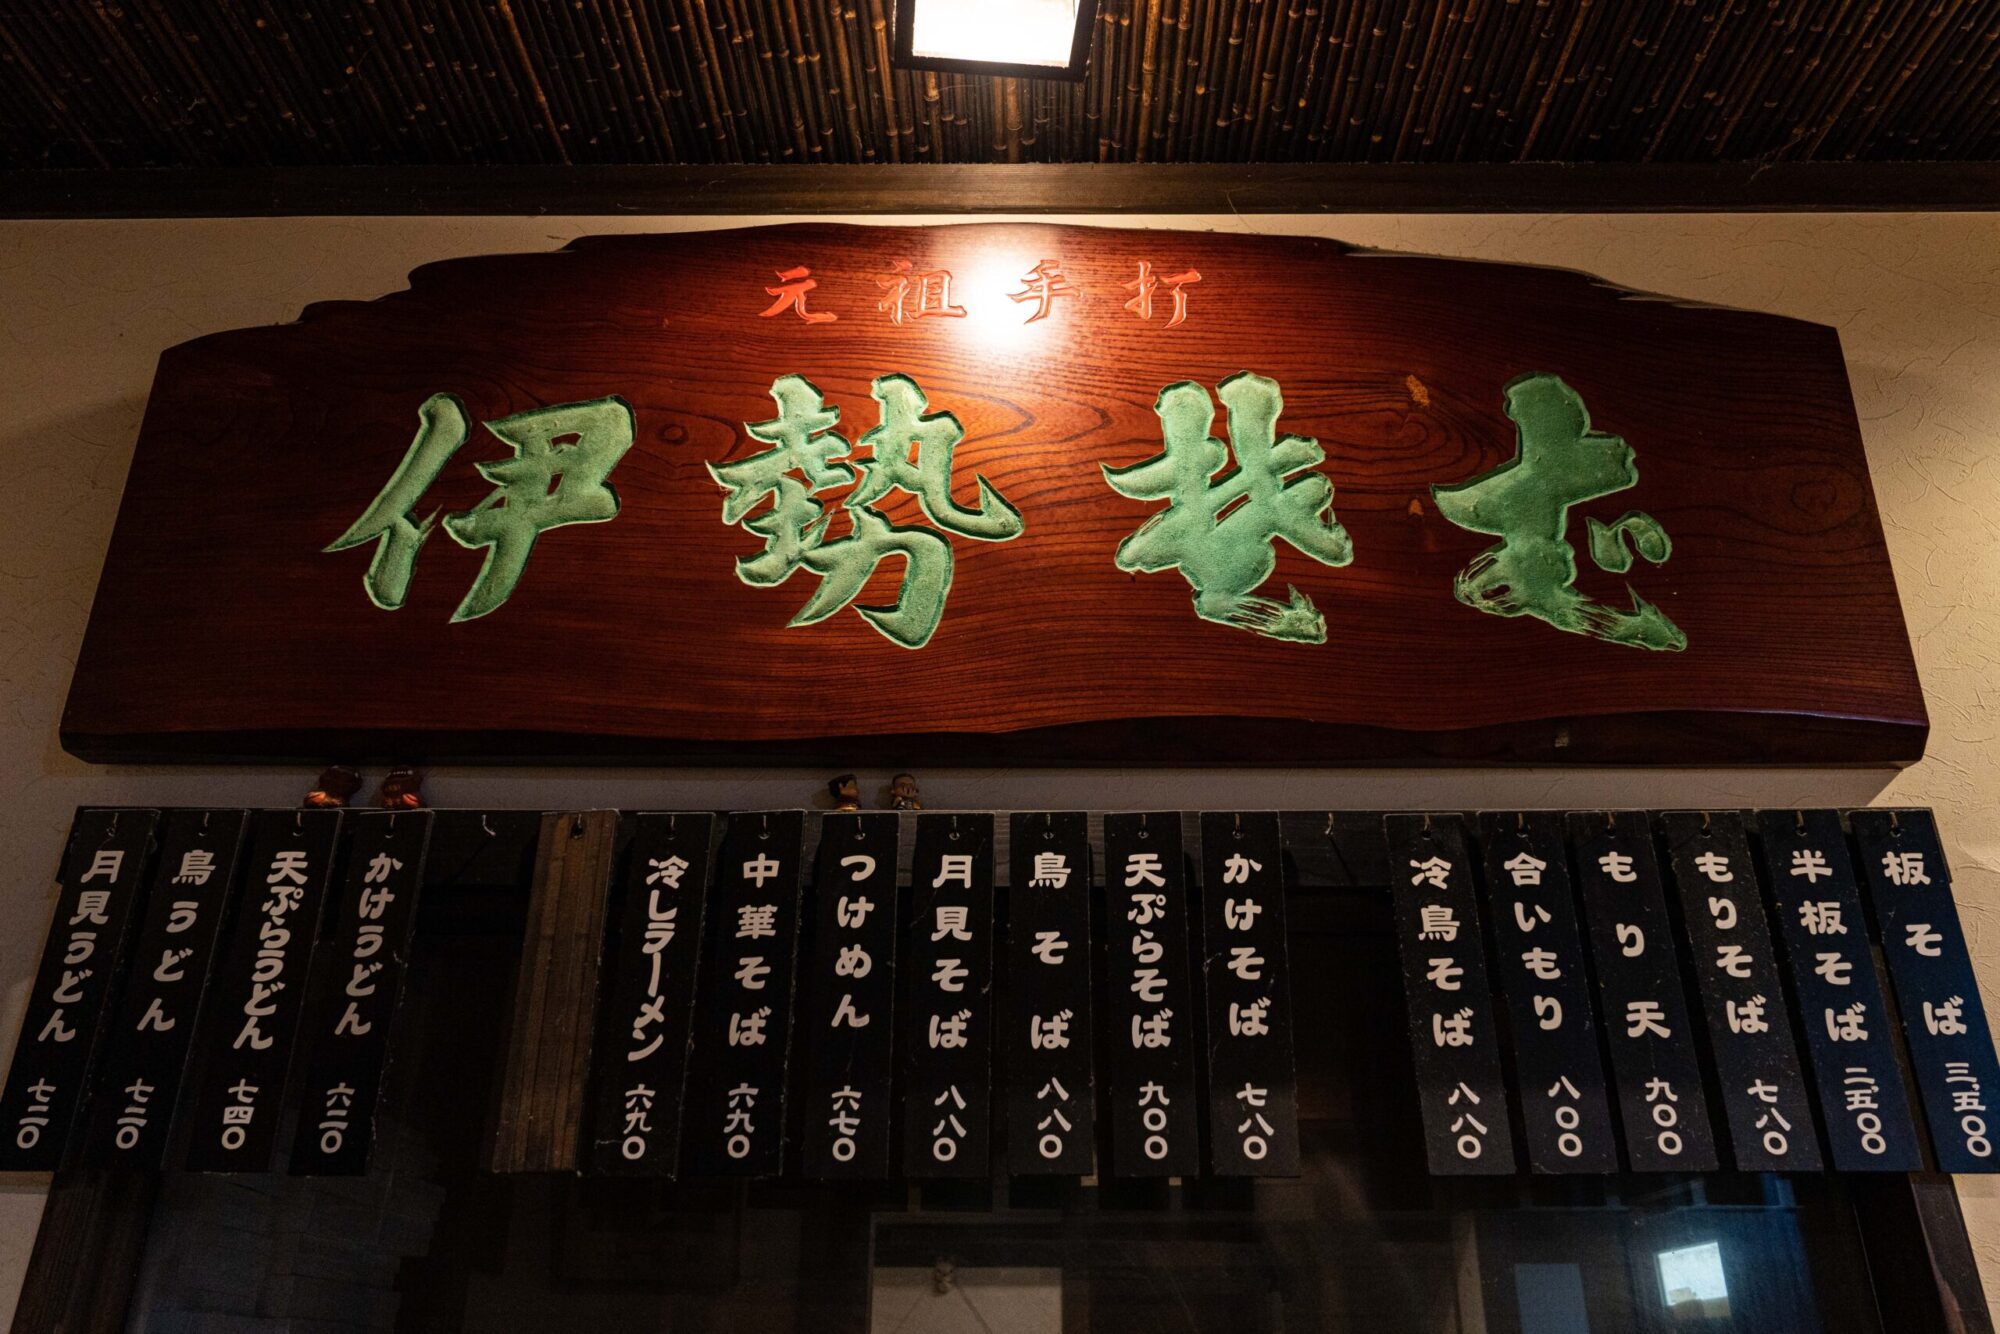 元祖手打
伊勢そば
板そば 三、五〇〇
半板そば 二、五〇〇
もりそば 七八〇
もり天 九〇〇
合いもり 八〇〇
冷鳥そば 八八〇
かけそば 七八〇
天ぷらそば 九〇〇
鳥そば 八八〇
月見そば 八八〇
つけめん 六七〇
中華そば 六九〇
冷しラーメン 六九〇
かけうどん 六二〇
天ぷらうどん 七四〇
鳥うどん 七二〇
月見うどん 七二〇